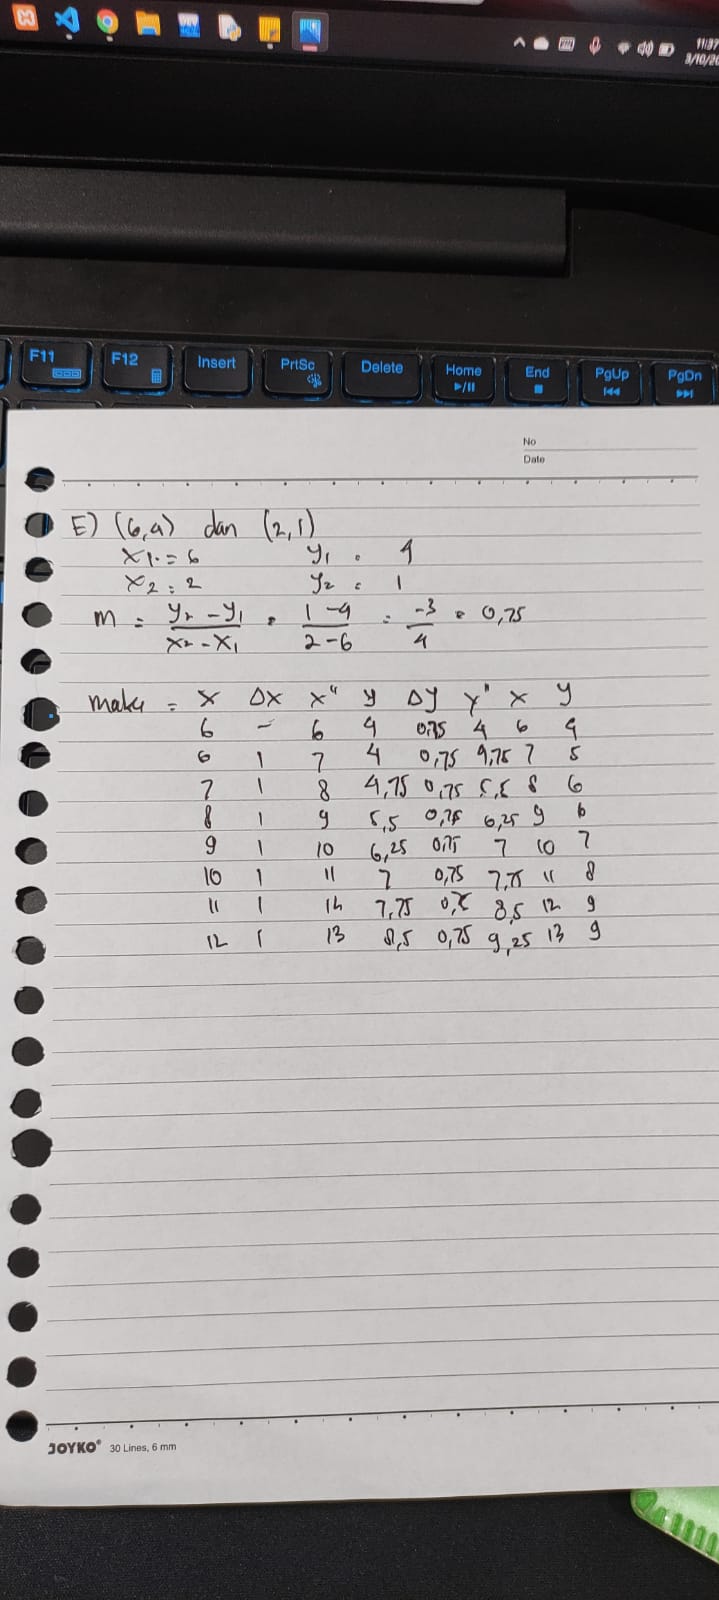 11:37
3/10/20
F11
F12
Insert
PrtSc
Delete
Home
End
PgUp
PgDn
No
Date
E) (6,4) dan (2,1)
x1 = 6 y1 = 4
x2 = 2 y2 = 1
m = y2 - y1 / x2 - x1 = 1 - 4 / 2 - 6 = -3 / 4 = 0,75
maka = x Δx x" y Δy y" x y
6 - 6 4 0,75 4 6 4
6 1 7 4 0,75 4,75 7 5
7 1 8 4,75 0,75 5,5 8 6
8 1 9 5,5 0,75 6,25 9 6
9 1 10 6,25 0,75 7 10 7
10 1 11 7 0,75 7,75 11 8
11 1 12 7,75 0,75 8,5 12 9
12 1 13 8,5 0,75 9,25 13 9
JOYKO® 30 Lines, 6 mm